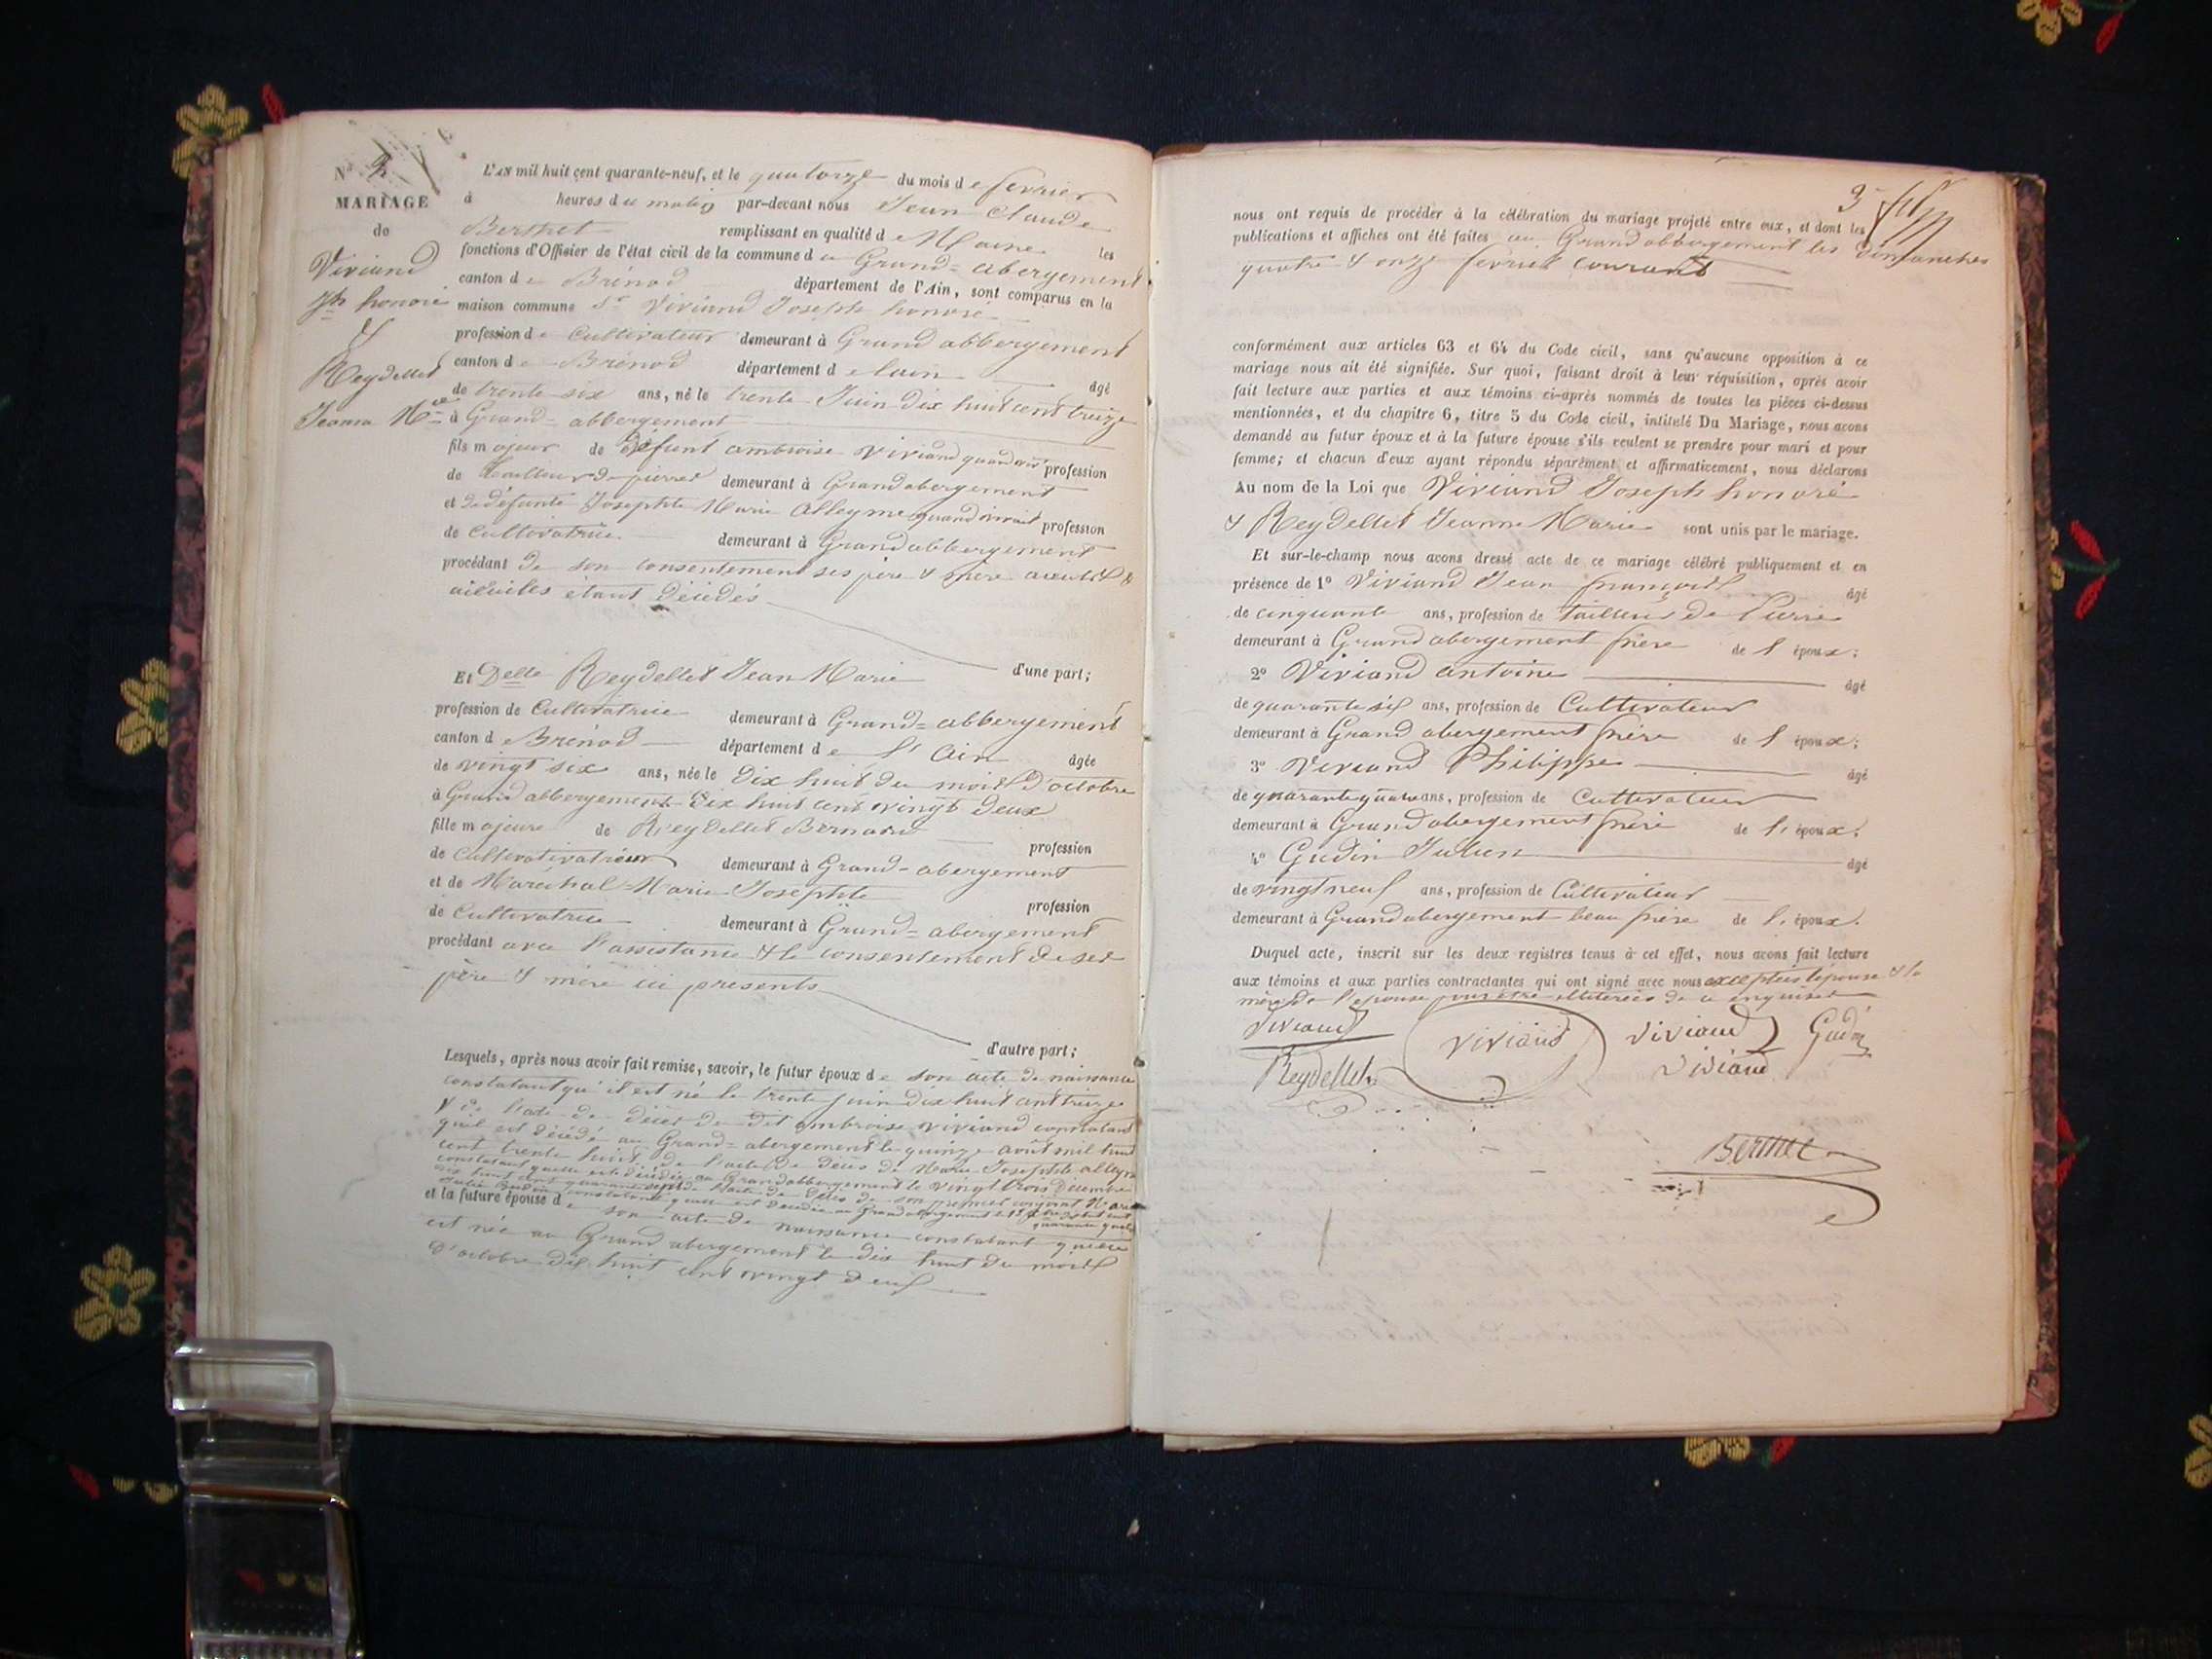 N° 2
MARIAGE
de
Viviand
Jh honoré
&
Reydellet
Jeanne Mie
L'AN mil huit cent quarante-neuf, et le quatorze du mois de fevrier
à heures du matin par-devant nous Jean Claude
Berthet remplissant en qualité de Maire les
fonctions d'Offisier de l'état civil de la commune de Grand-abergement
canton de Brénod département de l'Ain, sont comparus en la
maison commune Sr Viviand Joseph honoré
profession de Cultivateur demeurant à Grand abbergement
canton de Brénod département de lain âgé
de trente six ans, né le trente Juin dix huit cent treize
à Grand-abbergement
fils majeur de défunt ambroise Viviand quand vivait profession
de tailleur de pierres demeurant à Grand abergement
et de défunte Josephte Marie Alleyme quand vivait profession
de Cultivatrice demeurant à Grand abbergement
procédant de son consentement ses père & mère aieuls &
aieules étant décedés
d'une part;
Et Delle Reydellet Jean Marie
profession de Cultivatrice demeurant à Grand-abbergement
canton de Brénod département de l'Ain âgée
de vingt six ans, née le dix huit du mois d'octobre
à Grand abbergement dix huit cent vingt deux
fille majeure de Reydellet Bernard profession
de Cultivativatrieur demeurant à Grand-abergement
et de Maréchal Marie Josephte profession
de Cultivatrice demeurant à Grand-abergement
procédant avec l'assistance & le consentement de ses
père & mère ici presents
d'autre part;
Lesquels, après nous avoir fait remise, savoir, le futur époux de son acte de naissance
constatant qu'il est né le trente juin dix huit cent treize
& de l'acte de décès de dit ambroise Viviand constatant
quil est décédé au Grand-abergement le quinze août mil huit
cent trente huit, de l'acte de décès de Marie Josephte alleyme
constatant quelle est décédée au Grand abbergement le vingt trois décembre
dix huit cent quarante sept de l'acte de décès de son premier conjoint Marie
Julie constatant quelle est decedée au Grand abergement le
quarante quatre
et la future épouse de son acte de naissance constatant quelle
est née au Grand abergement le dix huit du mois
d'octobre dix huit cent vingt deux
3
nous ont requis de procéder à la célébration du mariage projeté entre eux, et dont les
publications et affiches ont été faites au Grand abbergement les dimanches
quatre & onze fevrier courant
conformément aux articles 63 et 64 du Code civil, sans qu'aucune opposition à ce
mariage nous ait été signifiée. Sur quoi, faisant droit à leur réquisition, après avoir
fait lecture aux parties et aux témoins ci-après nommés de toutes les pièces ci-dessus
mentionnées, et du chapitre 6, titre 5 du Code civil, intitulé Du Mariage, nous avons
demandé au futur époux et à la future épouse s'ils veulent se prendre pour mari et pour
femme; et chacun d'eux ayant répondu séparément et affirmativement, nous déclarons
Au nom de la Loi que Viviand Joseph honoré
& Reydellet Jeanne Marie sont unis par le mariage.
Et sur-le-champ nous avons dressé acte de ce mariage célébré publiquement et en
présence de 1° Viviand Jean françois âgé
de cinquante ans, profession de tailleur de Pierre
demeurant à Grand abergement frère de l'époux;
2° Viviand antoine âgé
de quarante six ans, profession de Cultivateur
demeurant à Grand abergement frère de l'époux;
3° Viviand Philippe âgé
de quarante quatre ans, profession de Cultivateur
demeurant à Grand abergement frère de l'époux;
4° Gudin Julien âgé
de vingt neuf ans, profession de Cultivateur
demeurant à Grand abergement beau frère de l'époux.
Duquel acte, inscrit sur les deux registres tenus à cet effet, nous avons fait lecture
aux témoins et aux parties contractantes qui ont signé avec nous exceptées l'épouse & la
mère de l'epouse pour être illiterées de ce enquises
Viviand Viviand Viviand Gudin
Reydellet Viviand
Berthet